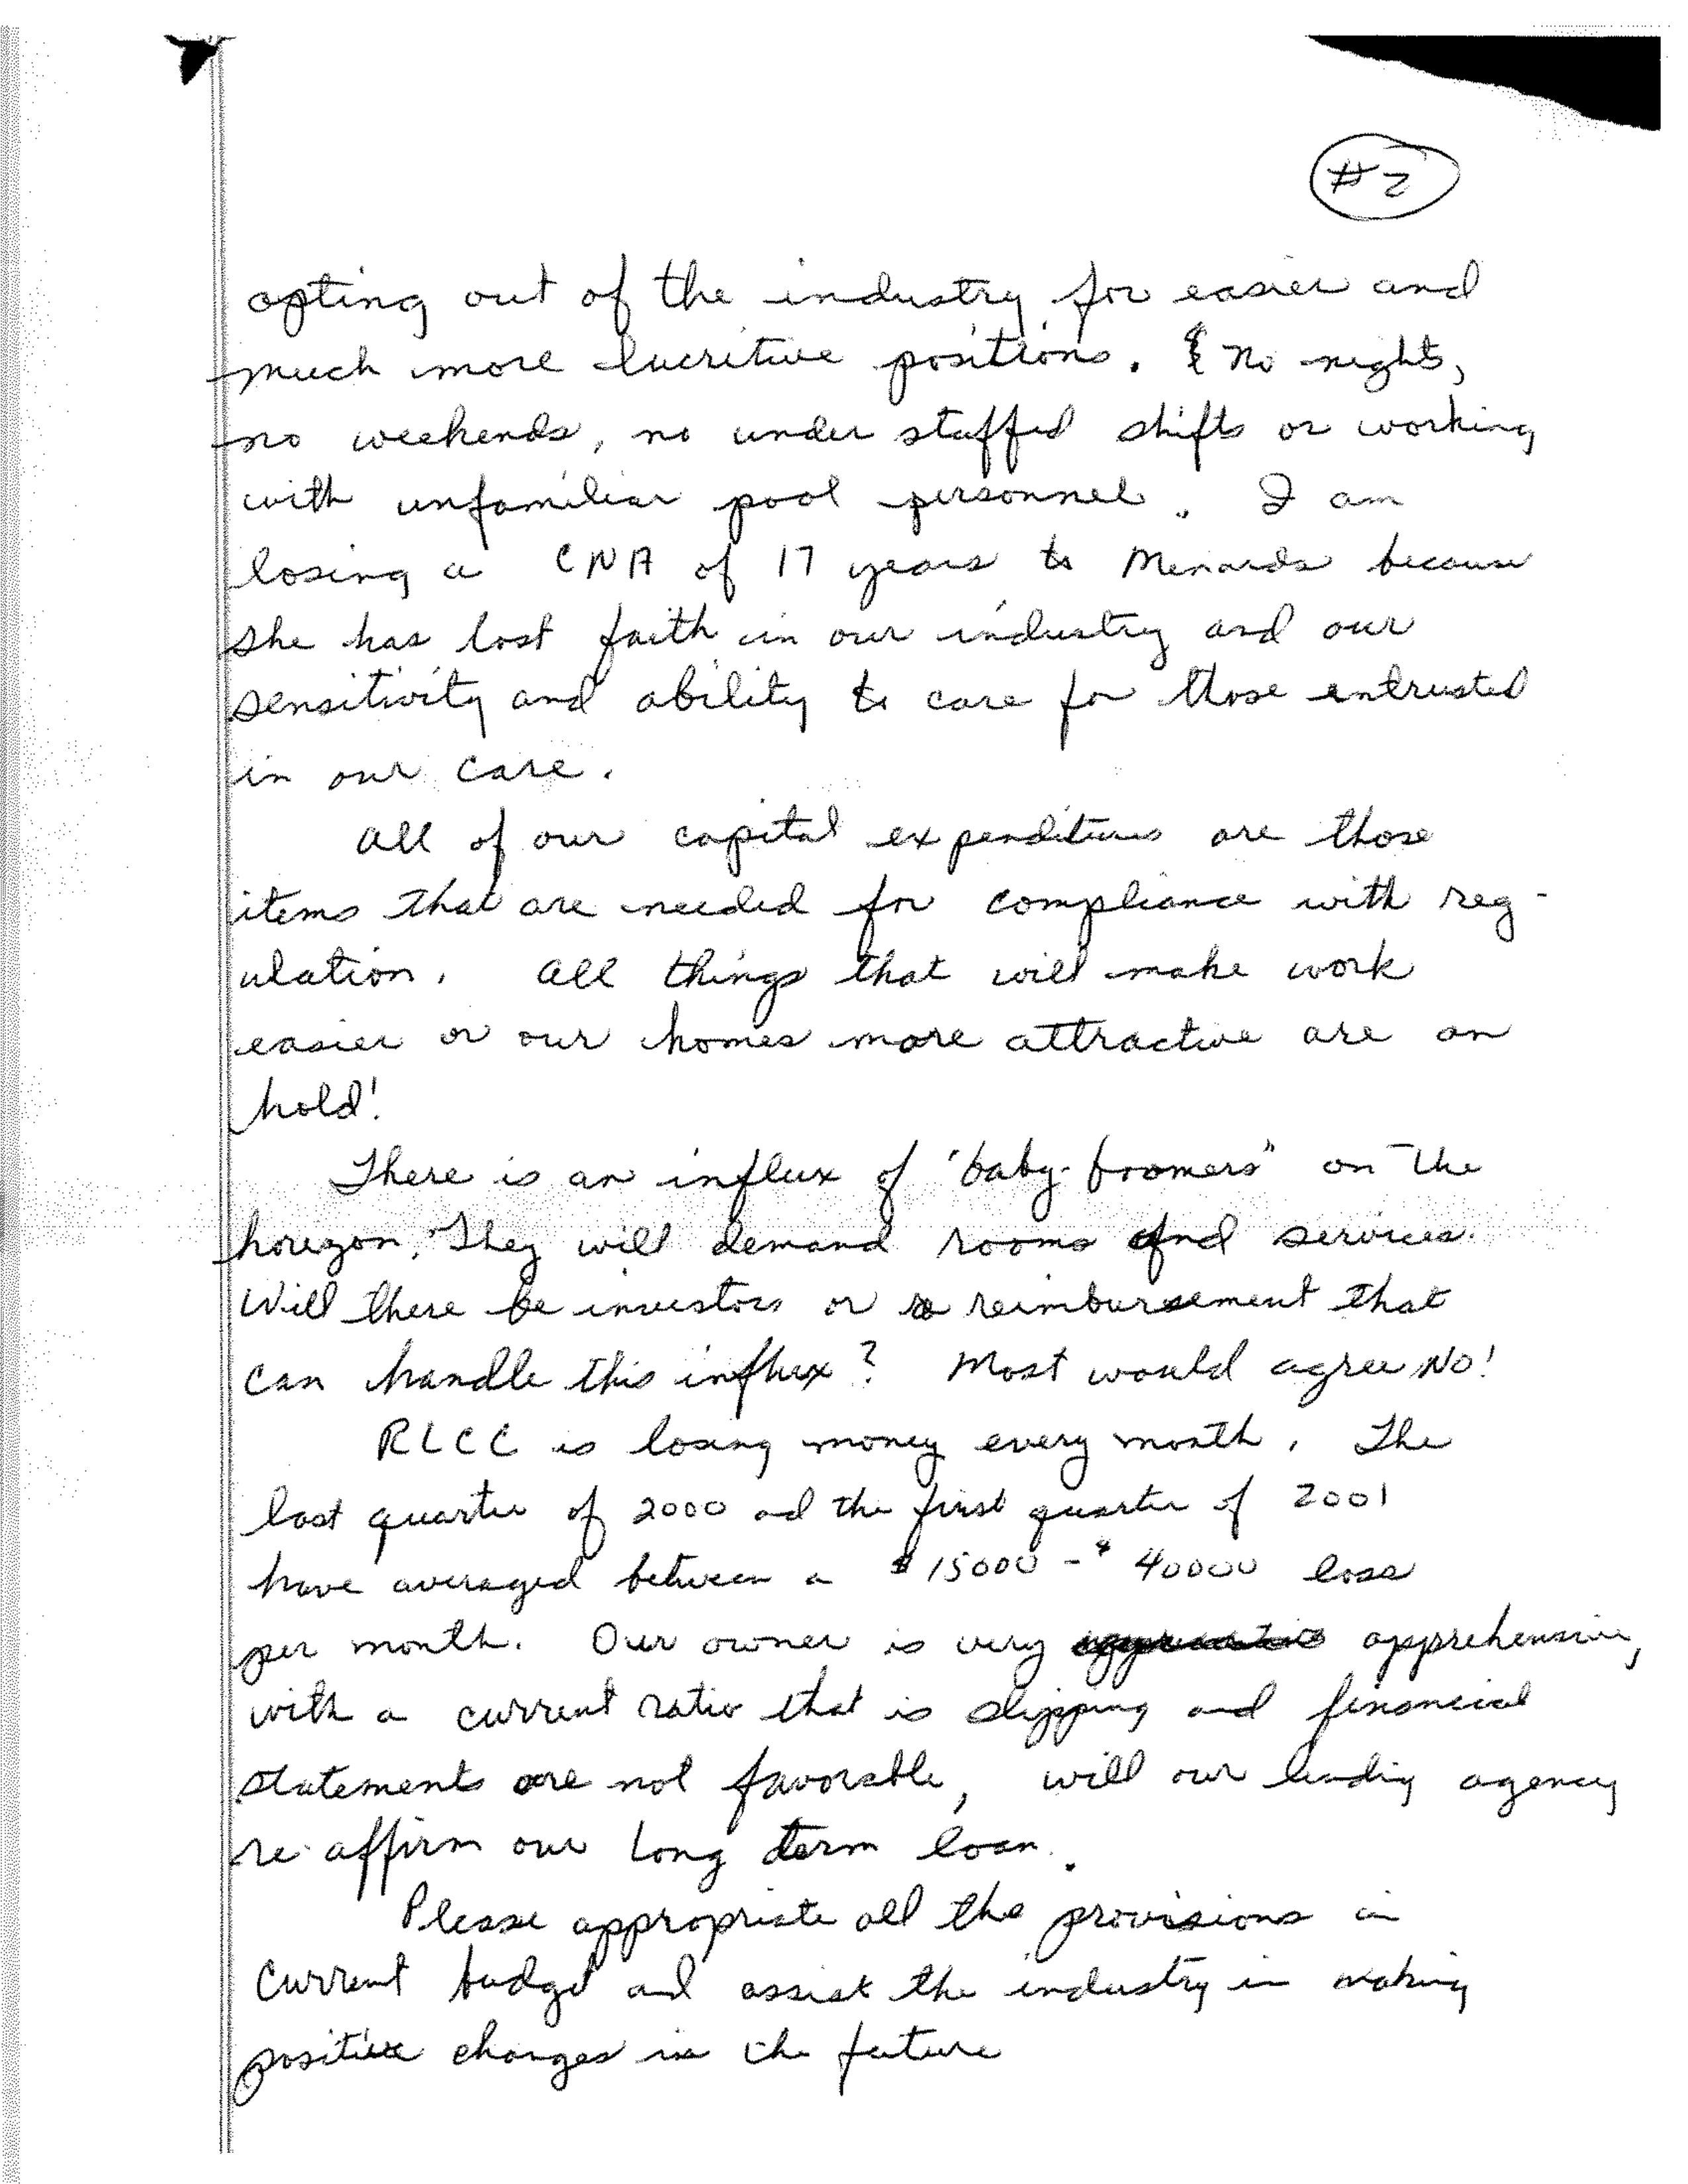 #2
opting out of the industry for easier and
much more lucritive positions. No nights,
no weekends, no under staffed shifts or working
with unfamiliar pool personnel. I am
losing a CNA of 17 years to Menards because
she has lost faith in our industry and our
sensitivity and ability to care for those entrusted
in our care.
All of our capital expenditures are those
items that are needed for compliance with reg-
ulation. All things that will make work
easier or our homes more attractive are on
hold!
There is an influx of "baby-boomers" on the
horizon. They will demand rooms and services.
Will there be investors or reimbursement that
can handle this influx? Most would agree No!
RLCC is losing money every month. The
last quarter of 2000 ad the first quarter of 2001
have averaged between a $15000 - $40000 loss
per month. Our owner is very apprehensive,
with a current ratio that is slipping and financial
statements are not favorable, will our lending agency
re-affirm our long term loan.
Please appropriate all the provisions in
current budget and assist the industry in making
positive changes in the future